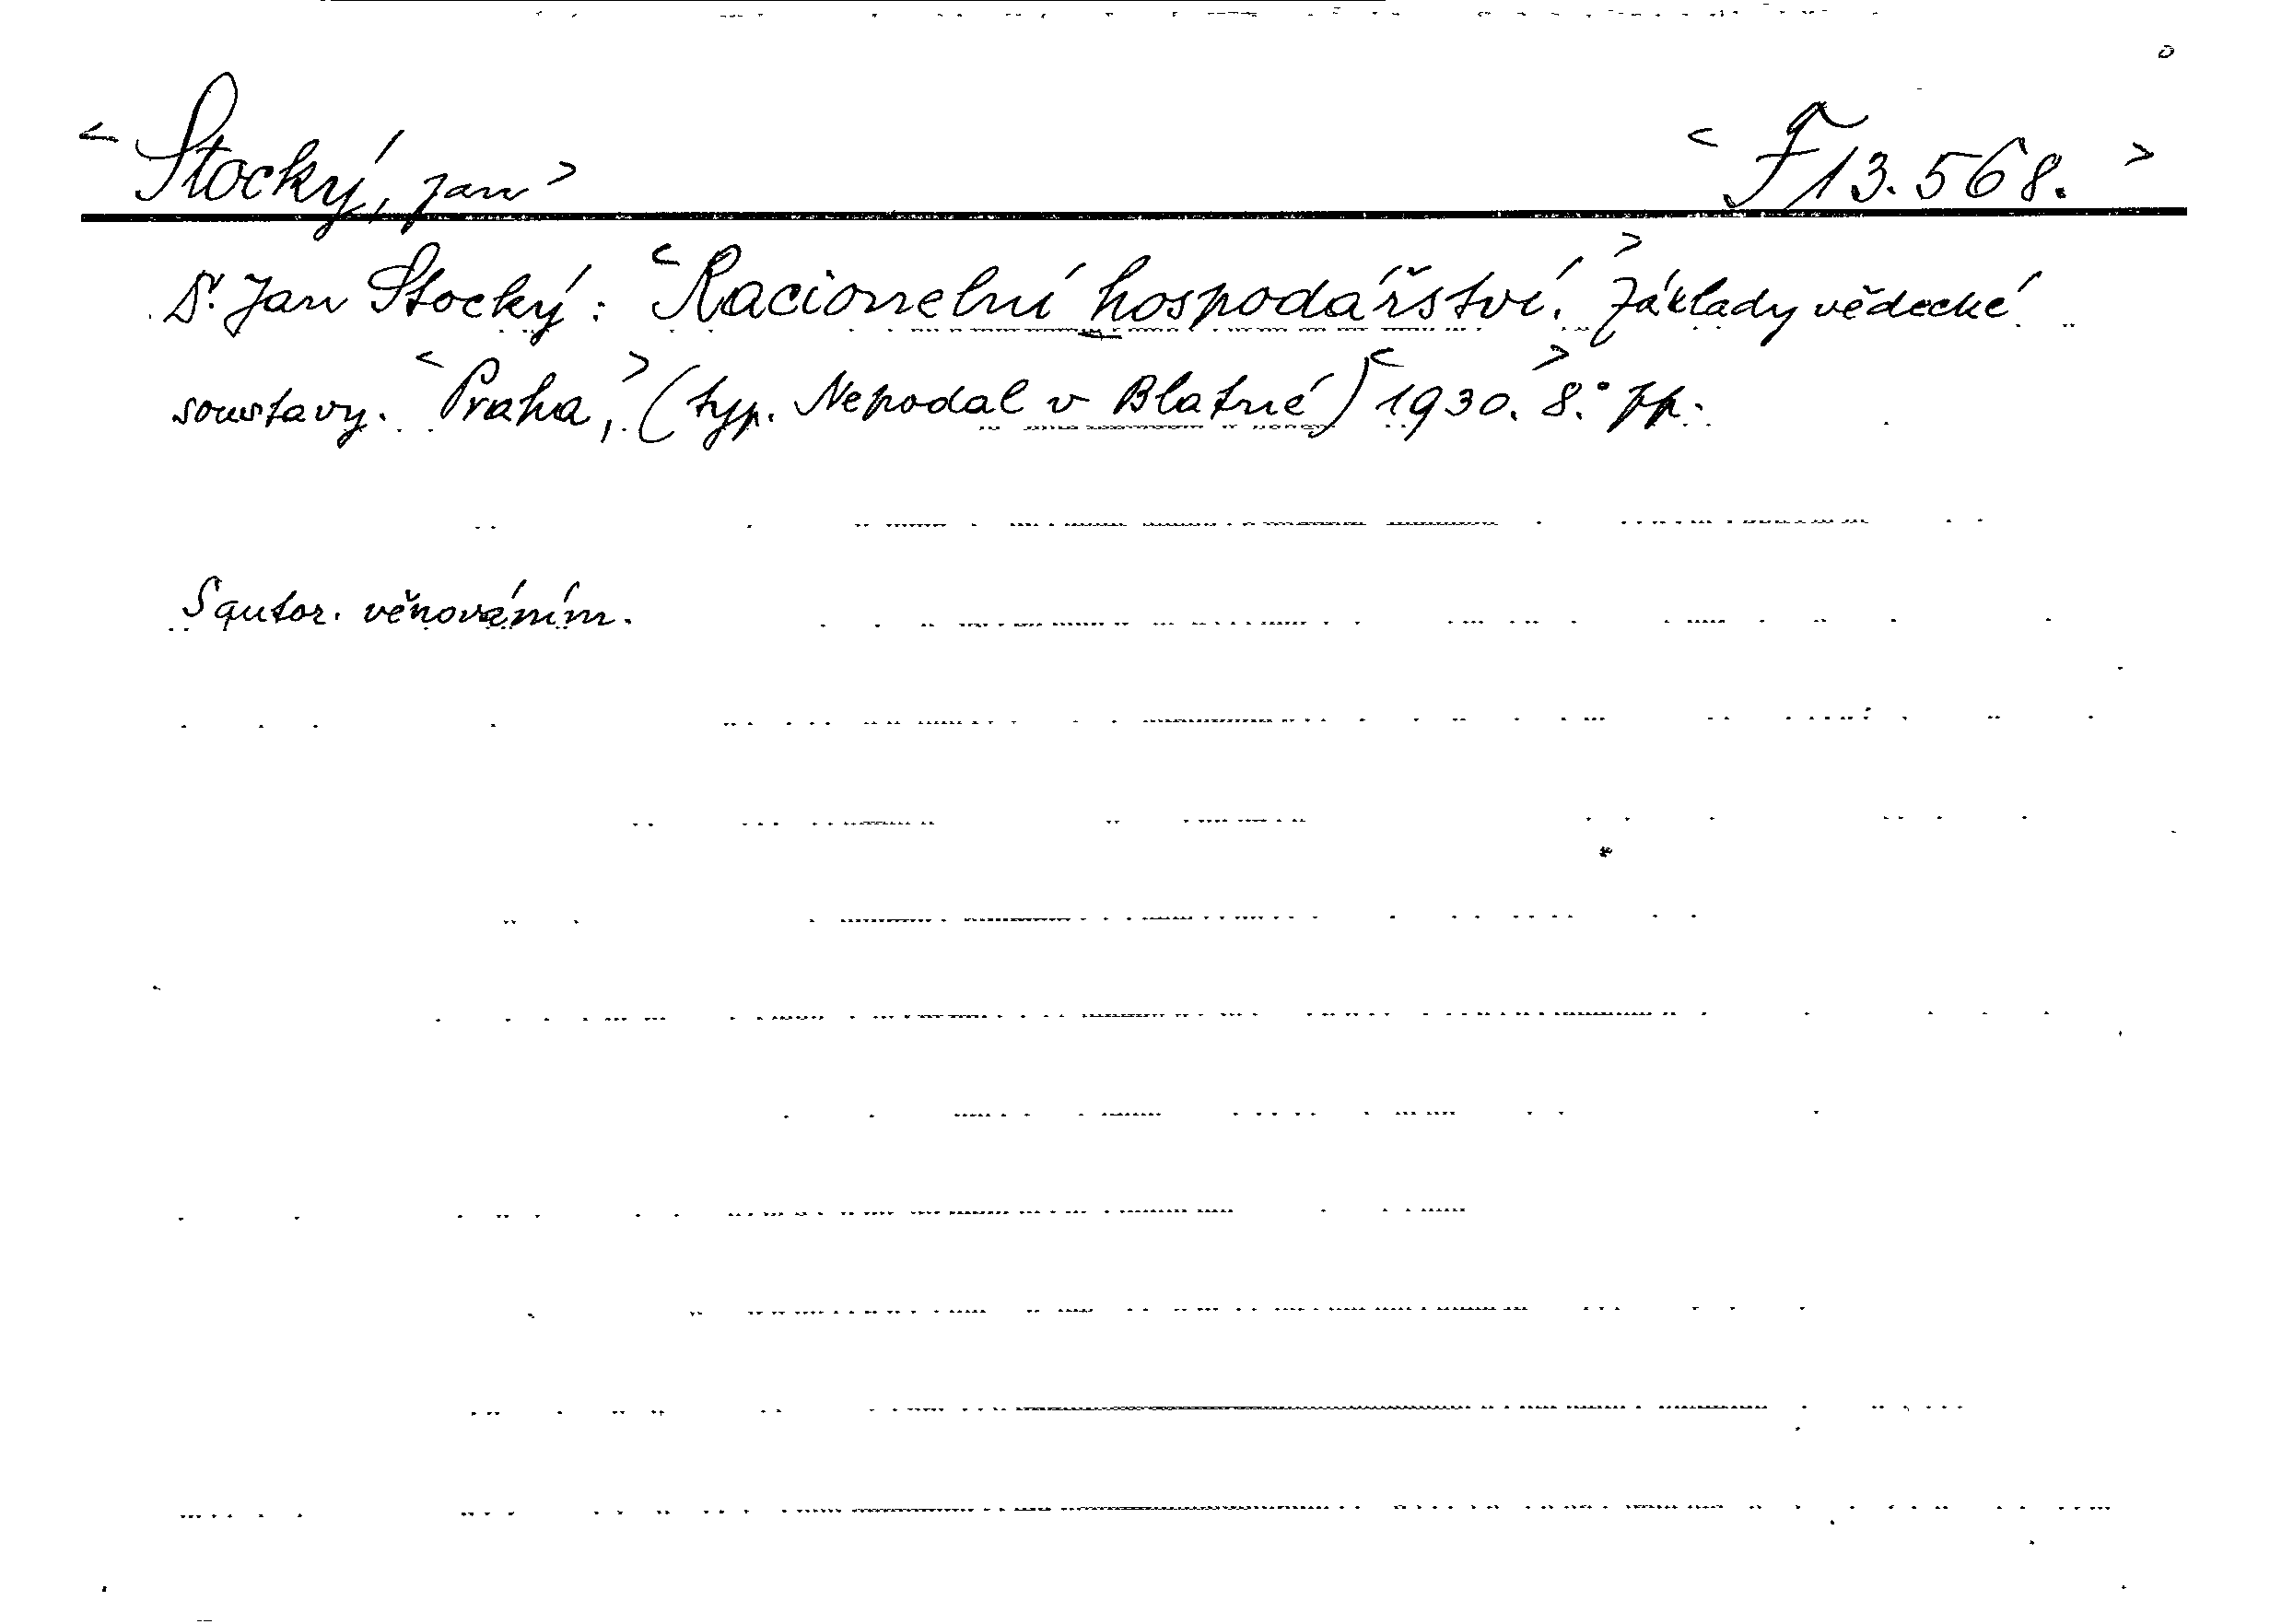 < Stocký, Jan > < F 13.568. >
Dr. Jan Stocký: < Racionelní hospodářství. > Základy vědecké
soustavy. < Praha, > (typ. Nepodal v Blatné) < 1930. > 8.° pp.
S autor. věnováním.